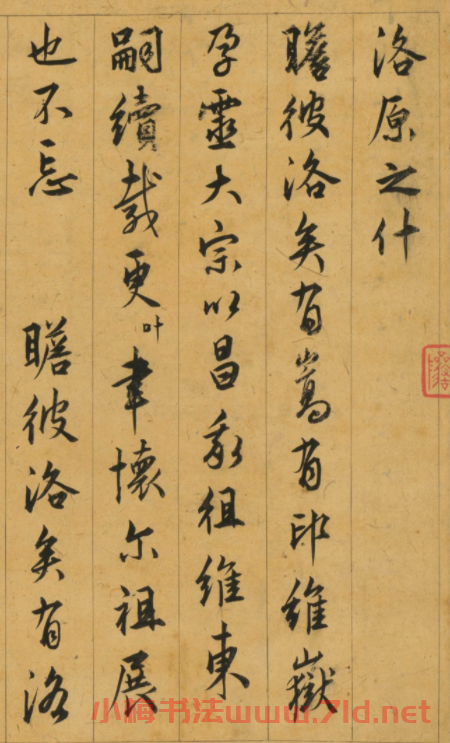 洛原之什
瞻彼洛矣有嵩有邙維嶽
孕靈大宗以昌我徂維東
嗣續載更叶聿懷尔祖展
也不忘 瞻彼洛矣有洛
小梅书法www.7ld.net